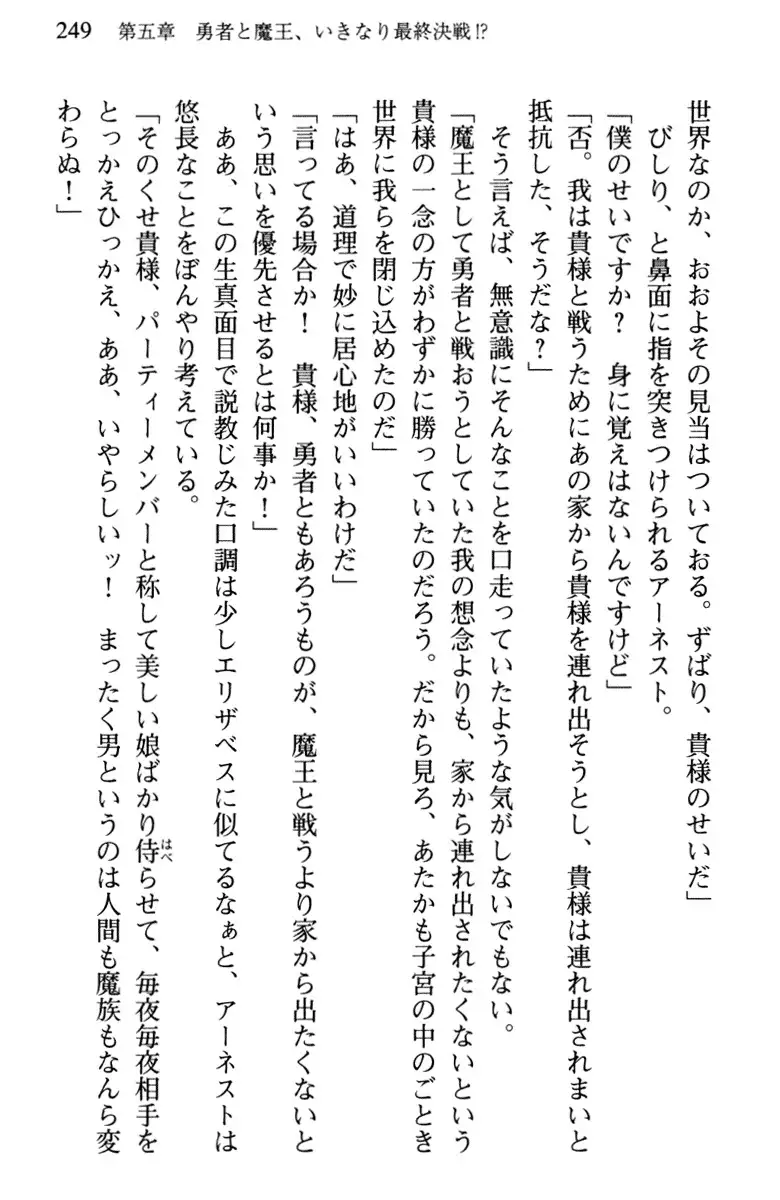 249 第五章　勇者と魔王、いきなり最終決戦!?
世界なのか、おおよその見当はついておる。ずばり、貴様のせいだ」
　びしり、と鼻面に指を突きつけられるアーネスト。
「僕のせいですか？　身に覚えはないんですけど」
「否。我は貴様と戦うためにあの家から貴様を連れ出そうとし、貴様は連れ出されまいと
抵抗した、そうだな？」
　そう言えば、無意識にそんなことを口走っていたような気がしないでもない。
「魔王として勇者と戦おうとしていた我の想念よりも、家から連れ出されたくないという
貴様の一念の方がわずかに勝っていたのだろう。だから見ろ、あたかも子宮の中のごとき
世界に我らを閉じ込めたのだ」
「はあ、道理で妙に居心地がいいわけだ」
「言ってる場合か！　貴様、勇者ともあろうものが、魔王と戦うより家から出たくないと
いう思いを優先させるとは何事か！」
　ああ、この生真面目で説教じみた口調は少しエリザベスに似てるなぁと、アーネストは
悠長なことをぼんやり考えている。
「そのくせ貴様、パーティーメンバーと称して美しい娘ばかり侍らせて、毎夜毎夜相手を
はべ
とっかえひっかえ、ああ、いやらしいッ！　まったく男というのは人間も魔族もなんら変
わらぬ！」